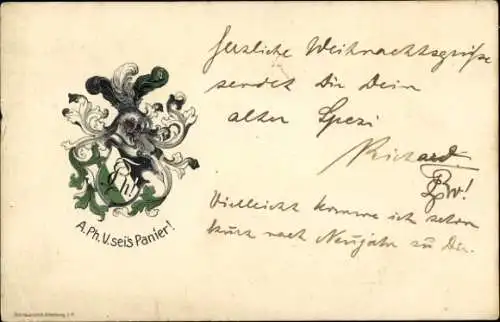 Herzliche Weihnachtsgrüße
sendet Dir Dein
alter Spezi
Richard
Vielleicht komme ich schon
kurz nach Neujahr zu Dir.
A.Ph.V. sei's Panier!